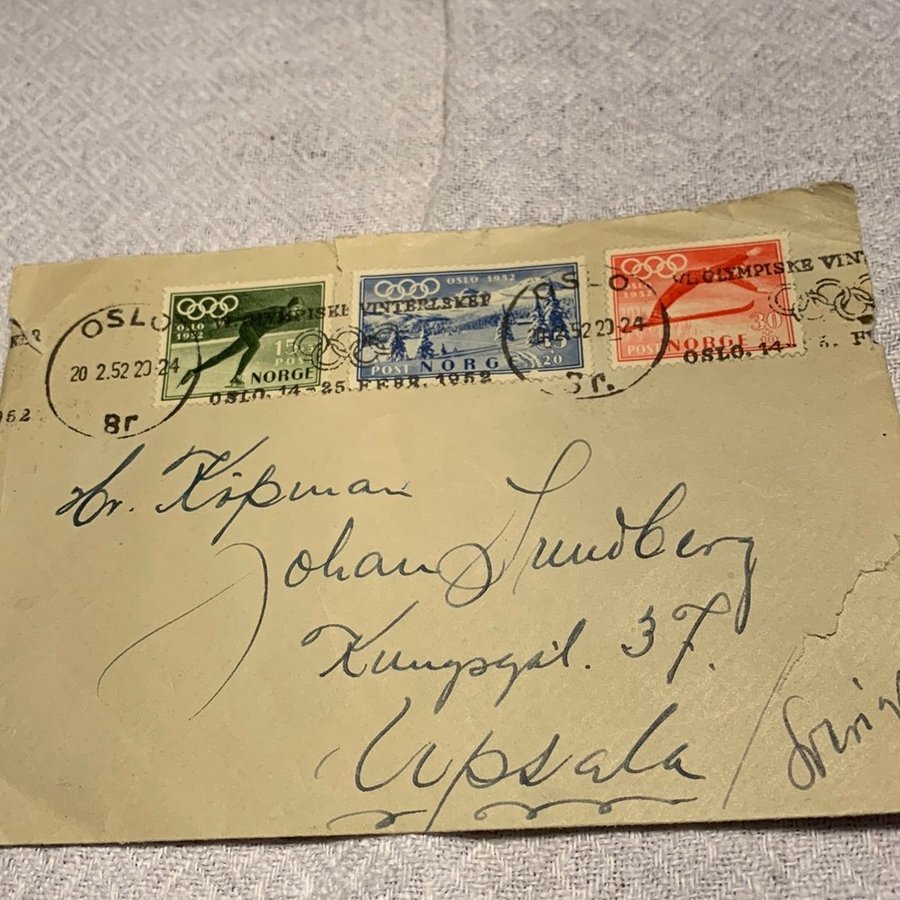 OSLO
20 2.52 20-24
Br
OSLO 1952
15
POST
NORGE
VI. OLYMPISKE VINTERLEKER
OSLO. 14-25. FEBR. 1952
OSLO 1952
POST NORGE
20
OSLO
20 2.52 20-24
Br.
OSLO 1952
30
POST NORGE
VI. OLYMPISKE VINT
OSLO. 14-
5. F
952
Hr. Köpman
Johan Lundberg
Kungsgat. 37.
Upsala / Sverige